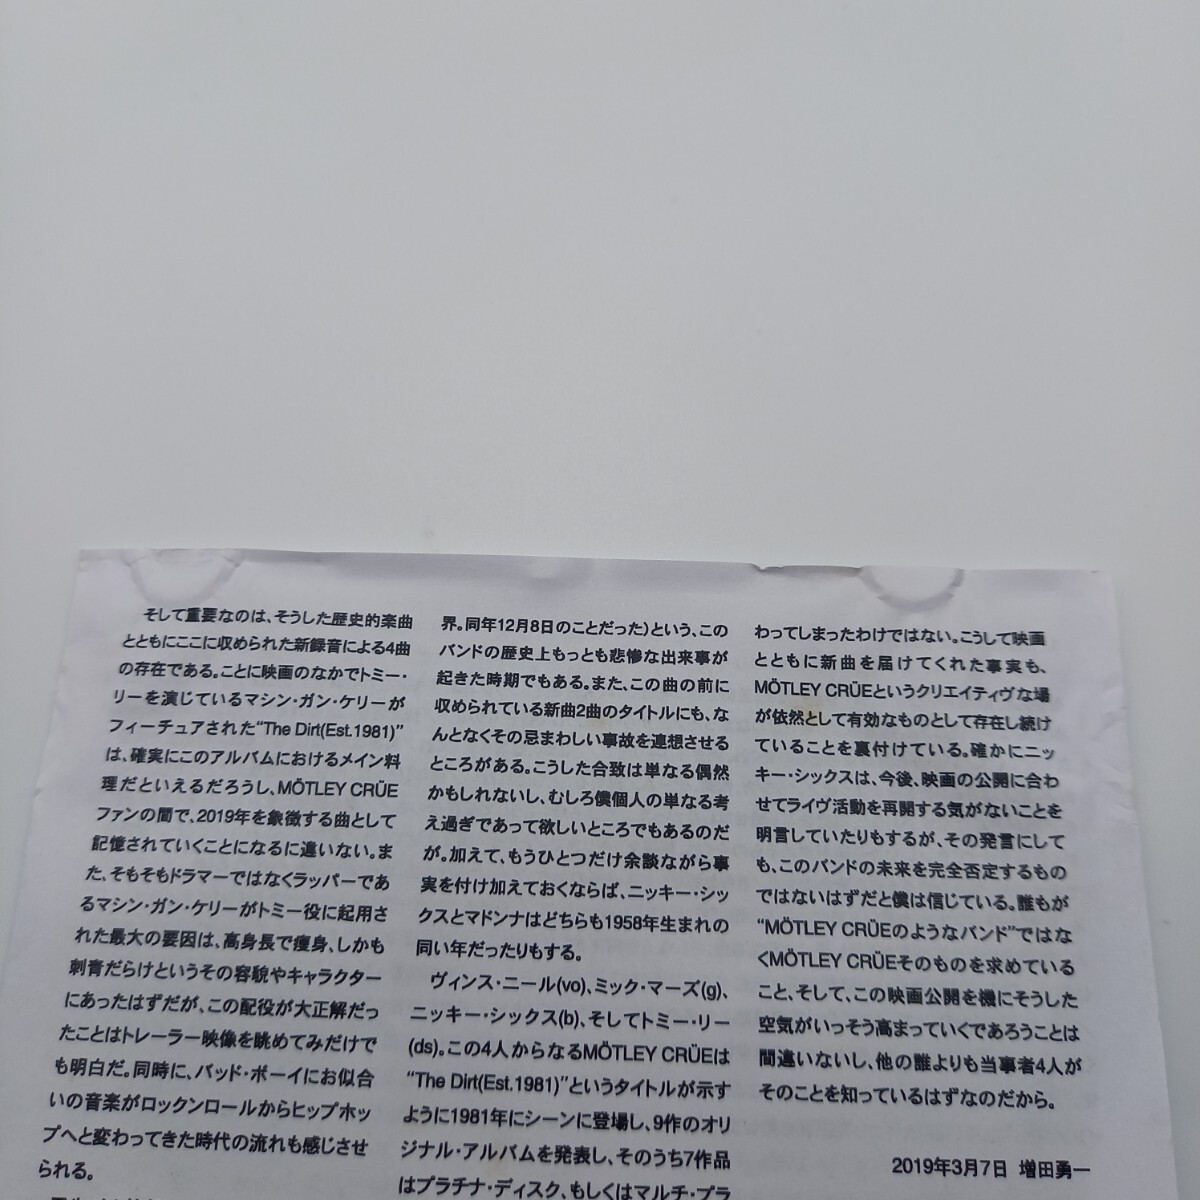 そして重要なのは、そうした歴史的楽曲
とともにここに収められた新録音による4曲
の存在である。ことに映画のなかでトミー・
リーを演じているマシン・ガン・ケリーが
フィーチュアされた“The Dirt(Est.1981)”
は、確実にこのアルバムにおけるメイン料
理だといえるだろうし、MÖTLEY CRÜE
ファンの間で、2019年を象徴する曲として
記憶されていくことになるに違いない。ま
た、そもそもドラマーではなくラッパーであ
るマシン・ガン・ケリーがトミー役に起用さ
れた最大の要因は、高身長で痩身、しかも
刺青だらけというその容貌やキャラクター
にあったはずだが、この配役が大正解だっ
たことはトレーラー映像を眺めてみだけで
も明白だ。同時に、バッド・ボーイにお似合
いの音楽がロックンロールからヒップホッ
プへと変わってきた時代の流れも感じさせ
られる。
界。同年12月8日のことだった)という、この
バンドの歴史上もっとも悲惨な出来事が
起きた時期でもある。また、この曲の前に
収められている新曲2曲のタイトルにも、な
んとなくその忌まわしい事故を連想させる
ところがある。こうした合致は単なる偶然
かもしれないし、むしろ僕個人の単なる考
え過ぎであって欲しいところでもあるのだ
が。加えて、もうひとつだけ余談ながら事
実を付け加えておくならば、ニッキー・シッ
クスとマドンナはどちらも1958年生まれの
同い年だったりもする。
ヴィンス・ニール(vo)、ミック・マーズ(g)、
ニッキー・シックス(b)、そしてトミー・リー
(ds)。この4人からなるMÖTLEY CRÜEは
“The Dirt(Est.1981)”というタイトルが示す
ように1981年にシーンに登場し、9作のオリ
ジナル・アルバムを発表し、そのうち7作品
はプラチナ・ディスク、もしくはマルチ・プラ
わってしまったわけではない。こうして映画
とともに新曲を届けてくれた事実も、
MÖTLEY CRÜEというクリエイティヴな場
が依然として有効なものとして存在し続け
ていることを裏付けている。確かにニッ
キー・シックスは、今後、映画の公開に合わ
せてライヴ活動を再開する気がないことを
明言していたりもするが、その発言にして
も、このバンドの未来を完全否定するもの
ではないはずだと僕は信じている。誰もが
“MÖTLEY CRÜEのようなバンド”ではな
くMÖTLEY CRÜEそのものを求めている
こと、そして、この映画公開を機にそうした
空気がいっそう高まっていくであろうことは
間違いないし、他の誰よりも当事者4人が
そのことを知っているはずなのだから。
2019年3月7日 増田勇一